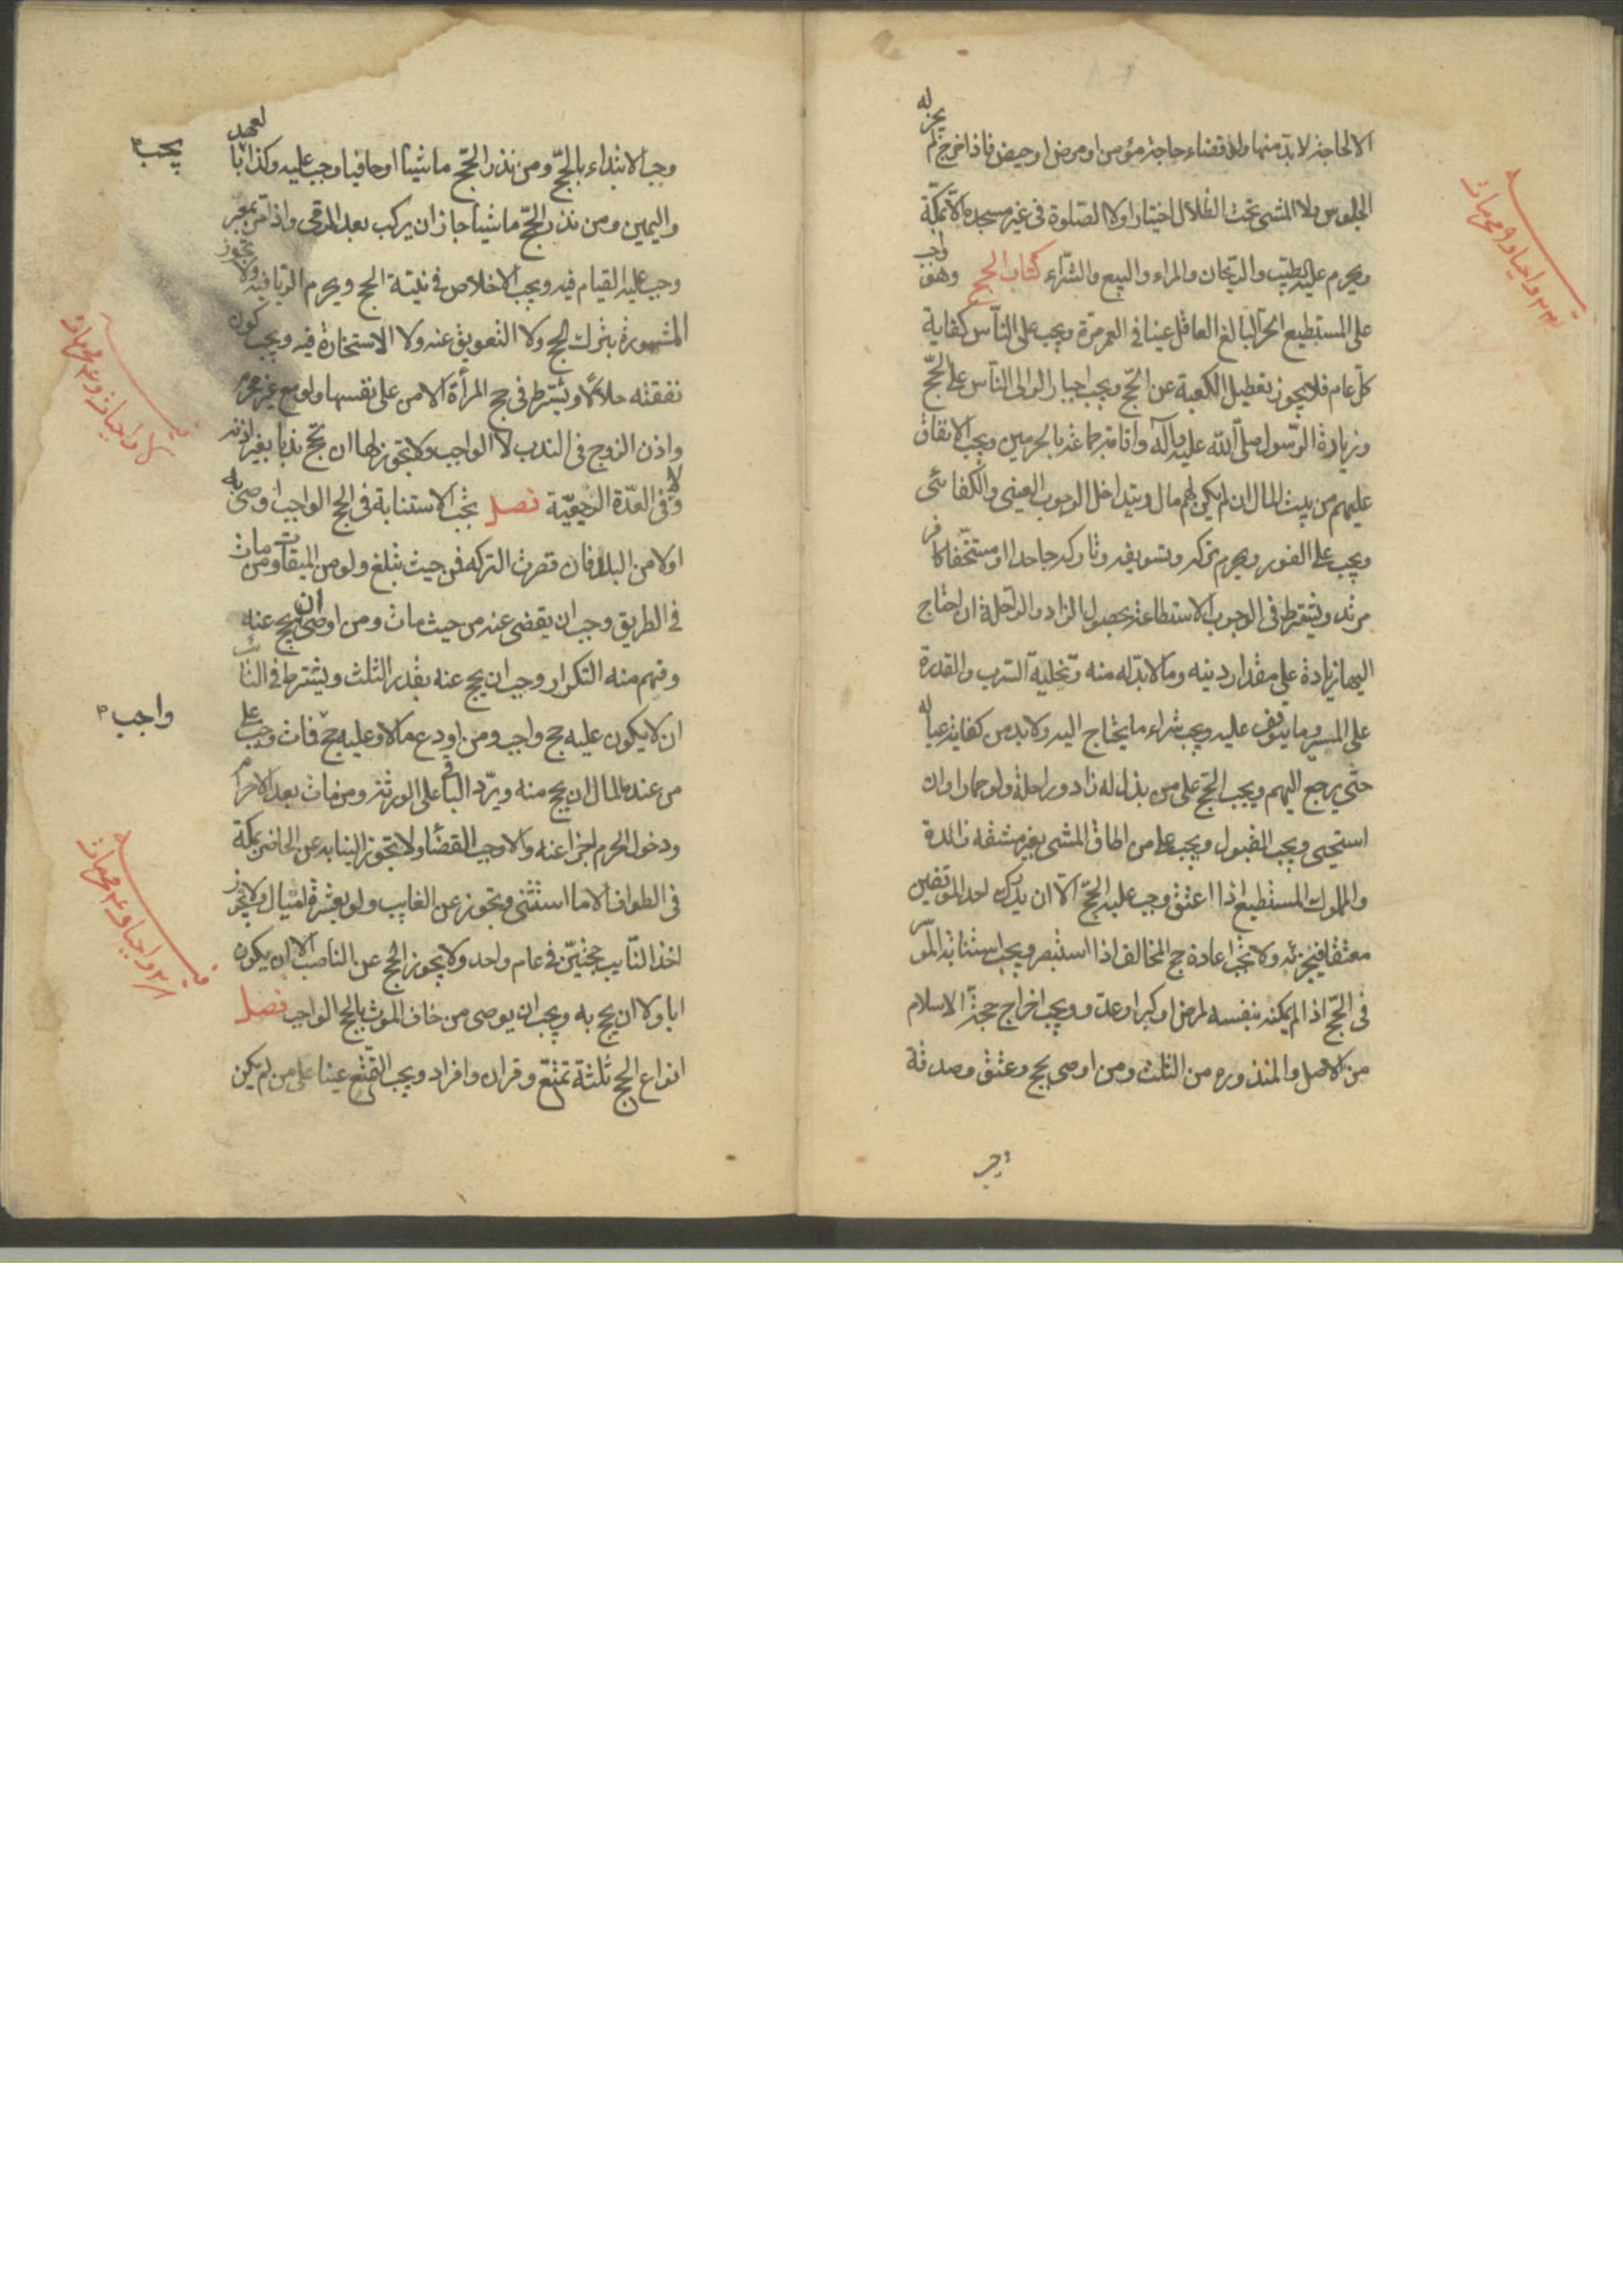 الا لحاجة لا بد منها ولو قضاء حاجة مؤمن او مرض او حيض فاذا خرج لم يجز له
الجلوس ولا المشى تحت الظلال اختيارا ولا الصلوة فى غير مسجده الا بمكة
ويحرم عليه الطيب والريحان والمراء والبيع والشراء كتاب الحج وهو واجب
على المستطيع الحر البالغ العاقل عينا فى العمر مرة ويجب على الناس كفاية
كل عام فلا يجوز تعطيل الكعبة عن الحج ويجب اجبار الوالى الناس على الحج
وزيارة الرسول صلى الله عليه وآله واقامة جماعة بالحرمين ويجب الانفاق
عليهم من بيت المال ان لم يكن لهم مال ويتداخل الوجوب العينى والكفائى
ويجب على الفور ويحرم تركه وتسويفه وتاركه جاحدا او مستخفا كافر
مرتد ويشترط فى الوجوب الاستطاعة بحصول الزاد والراحلة ان احتاج
اليها زيادة على مقدار دينه وما لا بد له منه وتخلية السرب والقدرة
على المسير وما يتوقف عليه ويجب شراء ما يحتاج اليه ولا بد من كفاية عياله
حتى يرجع اليهم ويجب الحج على من بذل له زاد وراحلة ولو حمارا وان
استحيى ويجب القبول ويجب على من اطاق المشى بغير مشقه زائدة
والمملوك المستطيع اذا اعتق وجب عليه الحج الا ان يدرك احد الموقفين
معتقا فيجزئه ولا تجب اعادة حج المخالف اذا استبصر ويجب استنابة الموسر
فى الحج اذا لم يمكنه بنفسه لمرض او كبر او عدو ويجب اخراج حجة الاسلام
من الاصل والمنذوره من الثلث ومن اوصى بحج وعتق وصدقة
وجب الابتداء بالحج ومن نذر الحج ماشيا او حافيا وجب عليه وكذا بالعهد
يجب
واليمين ومن نذر الحج ماشيا جاز ان يركب بعد الرمى واذا مر بمعبر
وجب عليه القيام فيه ويجب الاخلاص فى نية الحج ويحرم الريا فيه ولا تجوز
المشورة بترك الحج ولا التعويق عنه ولا الاستخارة فيه ويجب كون
نفقته حلالا ويشترط فى حج المرأة الامن على نفسها ولو مع غير محرم
واذن الزوج فى الندب لا الواجب ولا تجوز لها ان تحج ندبا بغير اذنه
ولا فى العدة الرجعية فصل تجب الاستنابة فى الحج الواجب اوصى به
اولا من البلد فان قصرت التركه فمن حيث تبلغ ولو من الميقات ومن مات
فى الطريق وجب ان يقضى عنه من حيث مات ومن اوصى ان يحج عنه
وفهم منه التكرار وجب ان يحج عنه بقدر الثلث ويشترط فى النائب
ان لا يكون عليه حج واجب ومن اودع مالا وعليه حج فمات وجب على
واجب
من عنده المال ان يحج منه ويرد الباقى على الورثة ومن مات بعد الاحرام
ودخول الحرم اجزأ عنه والا وجب القضا ولا تجوز النيابه عن الحاضر بمكة
فى الطواف الا ما استثنى وتجوز عن الغايب ولو بعشرة اميال ولا يجوز
اخذ النايب حجتين فى عام واحد ولا يجوز الحج عن الناصب الا ان يكون
ابا ولا ان يحج به ويجب ان يوصى من خاف الموت بالحج الواجب فصل
انواع الحج ثلثة تمتع وقران وافراد ويجب التمتع عينا على من لم يكن